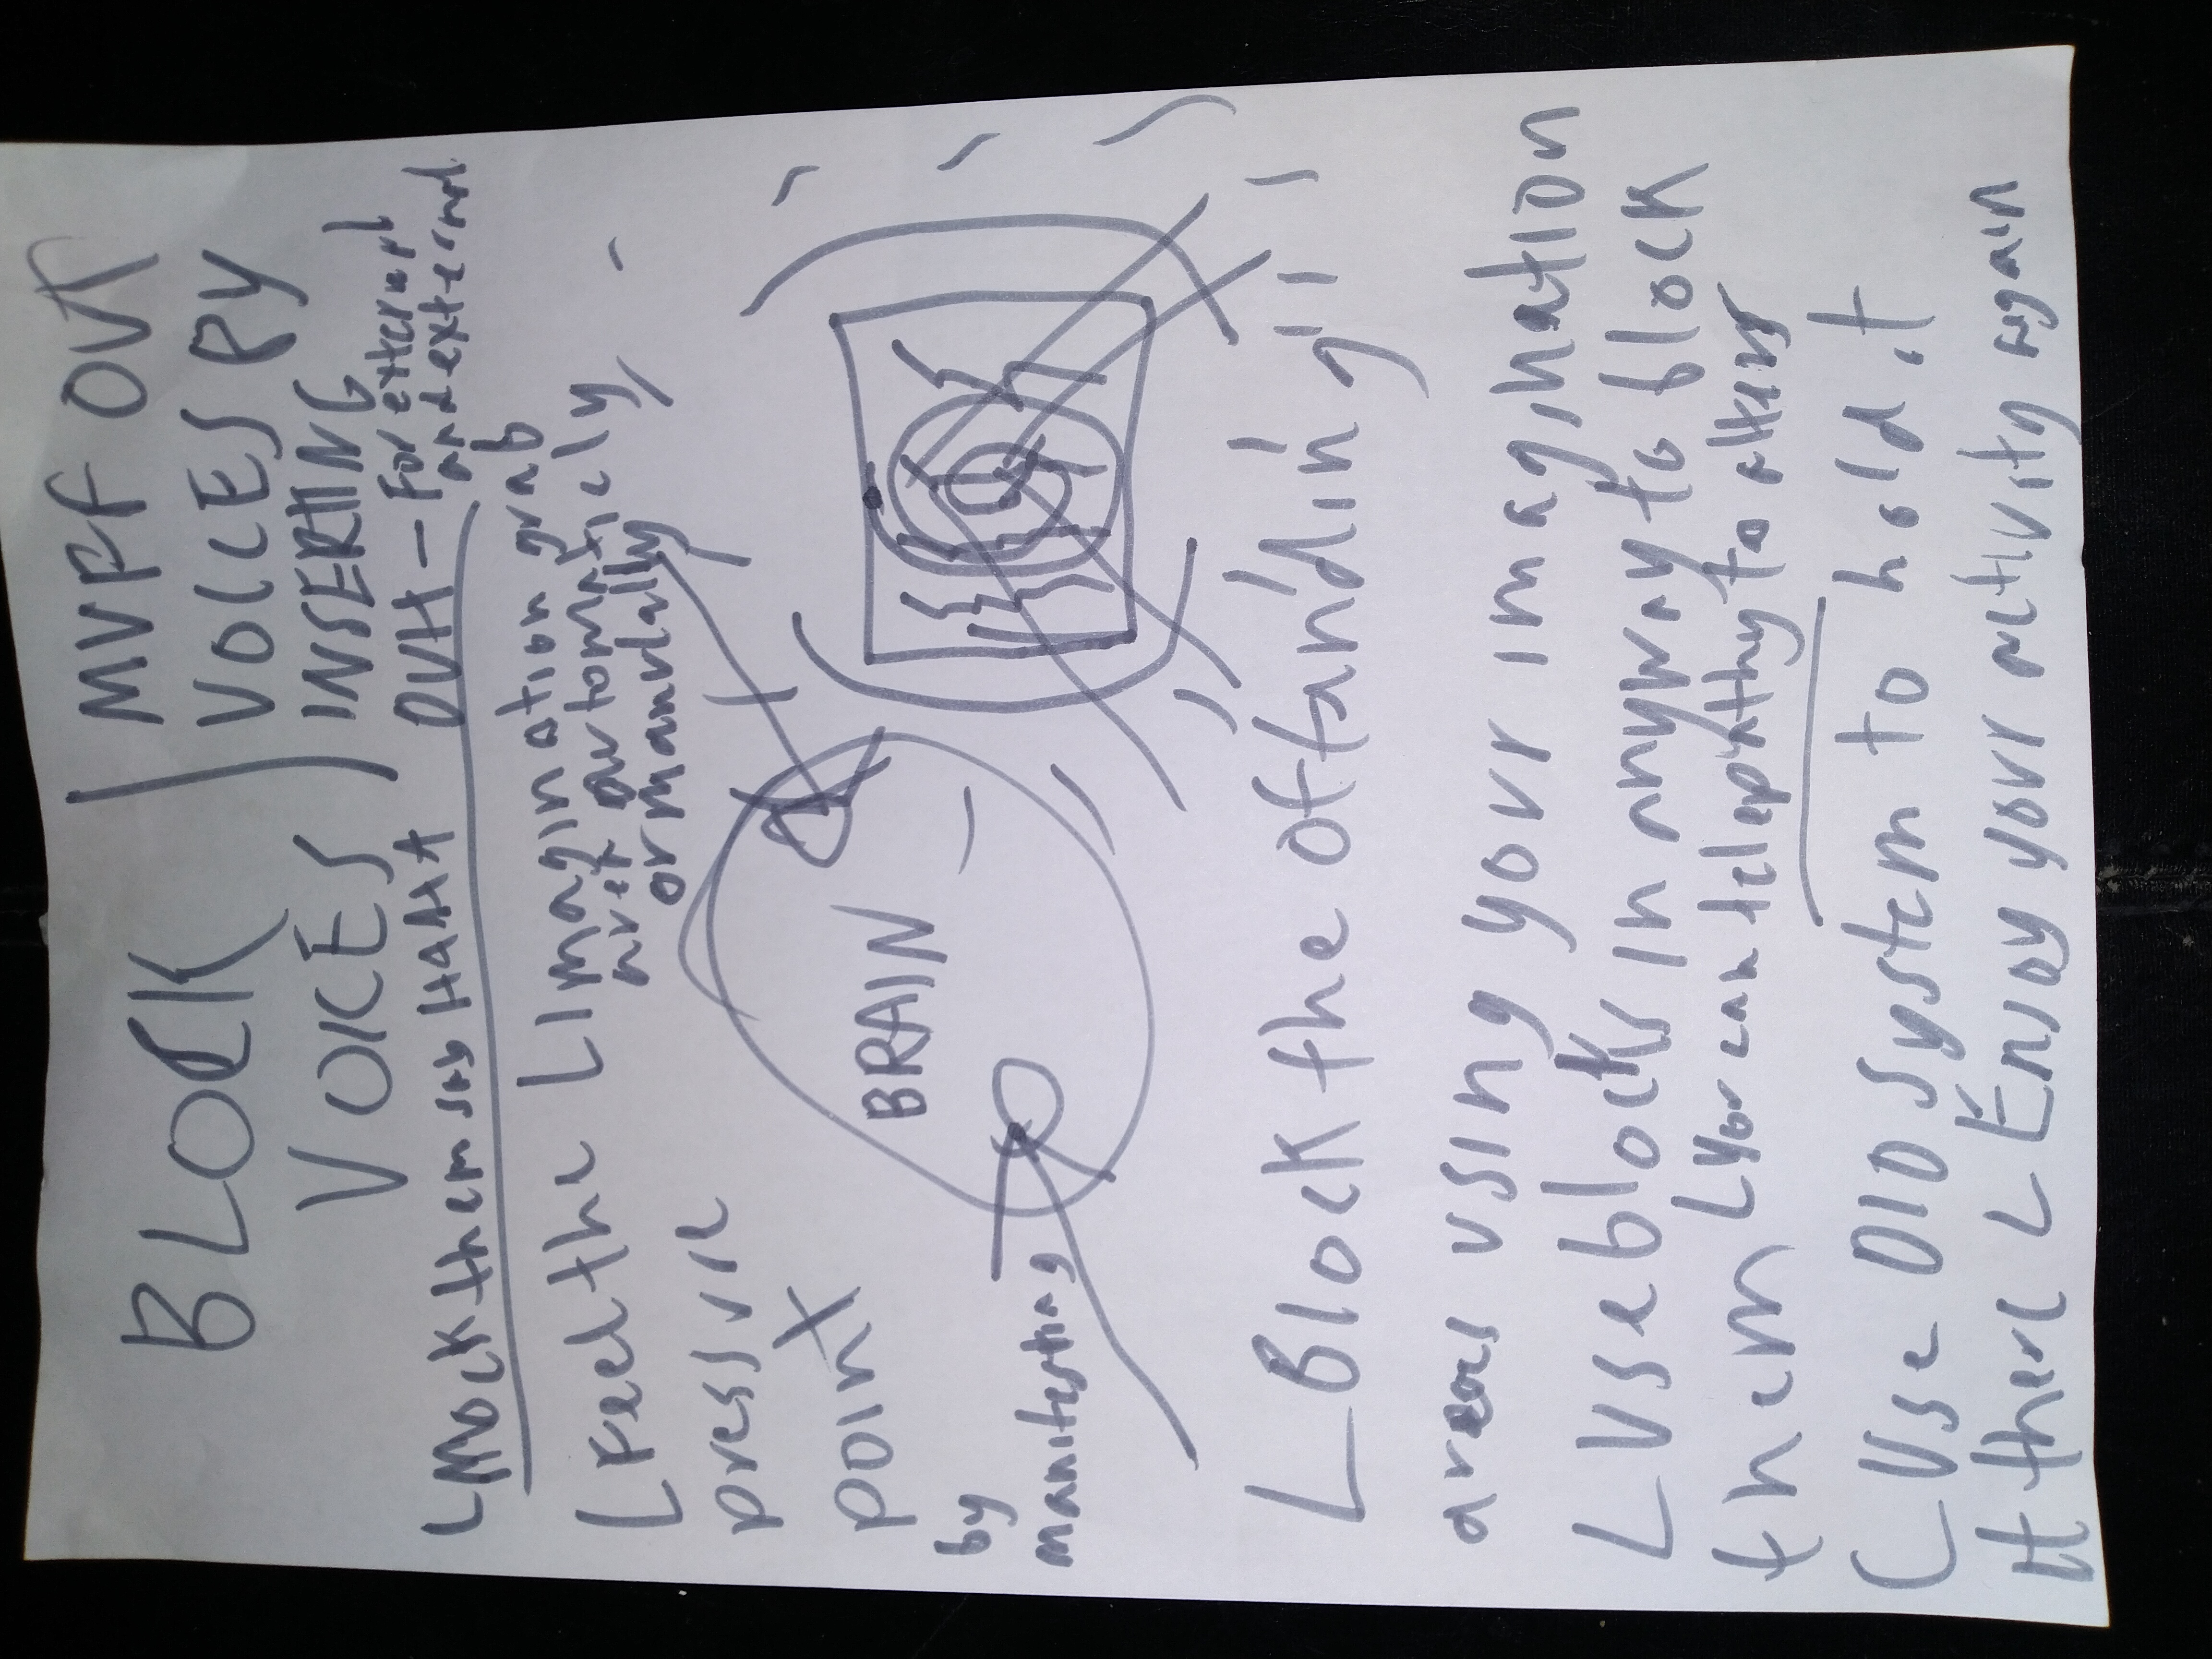 BLOCK
VOICES
MUFF OUT
VOICES BY
INSERTING
DUH - For external
and external
L Mock them say HAHA
L Feel the
pressure
point
by
manifesting
L Imagination grab
net automaticly
or manually
BRAIN
L Block the offanding
areas using your imagination
L Use blocks in anyway to block
them L You can telepathy to others
L Use DID system to hold it
there L Enjoy your activity again